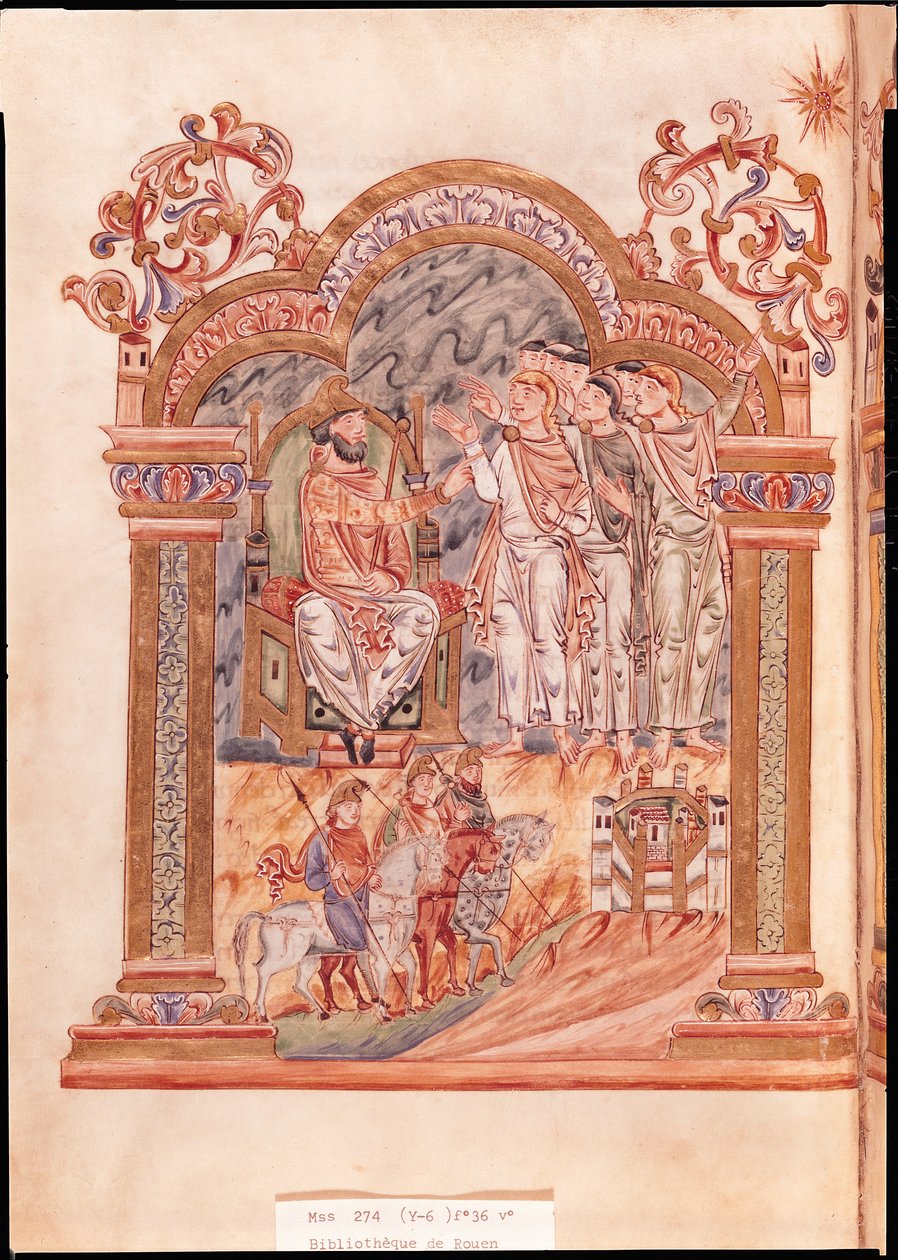 Mss 274 (Y-6 )f°36 v°
Bibliothèque de Rouen